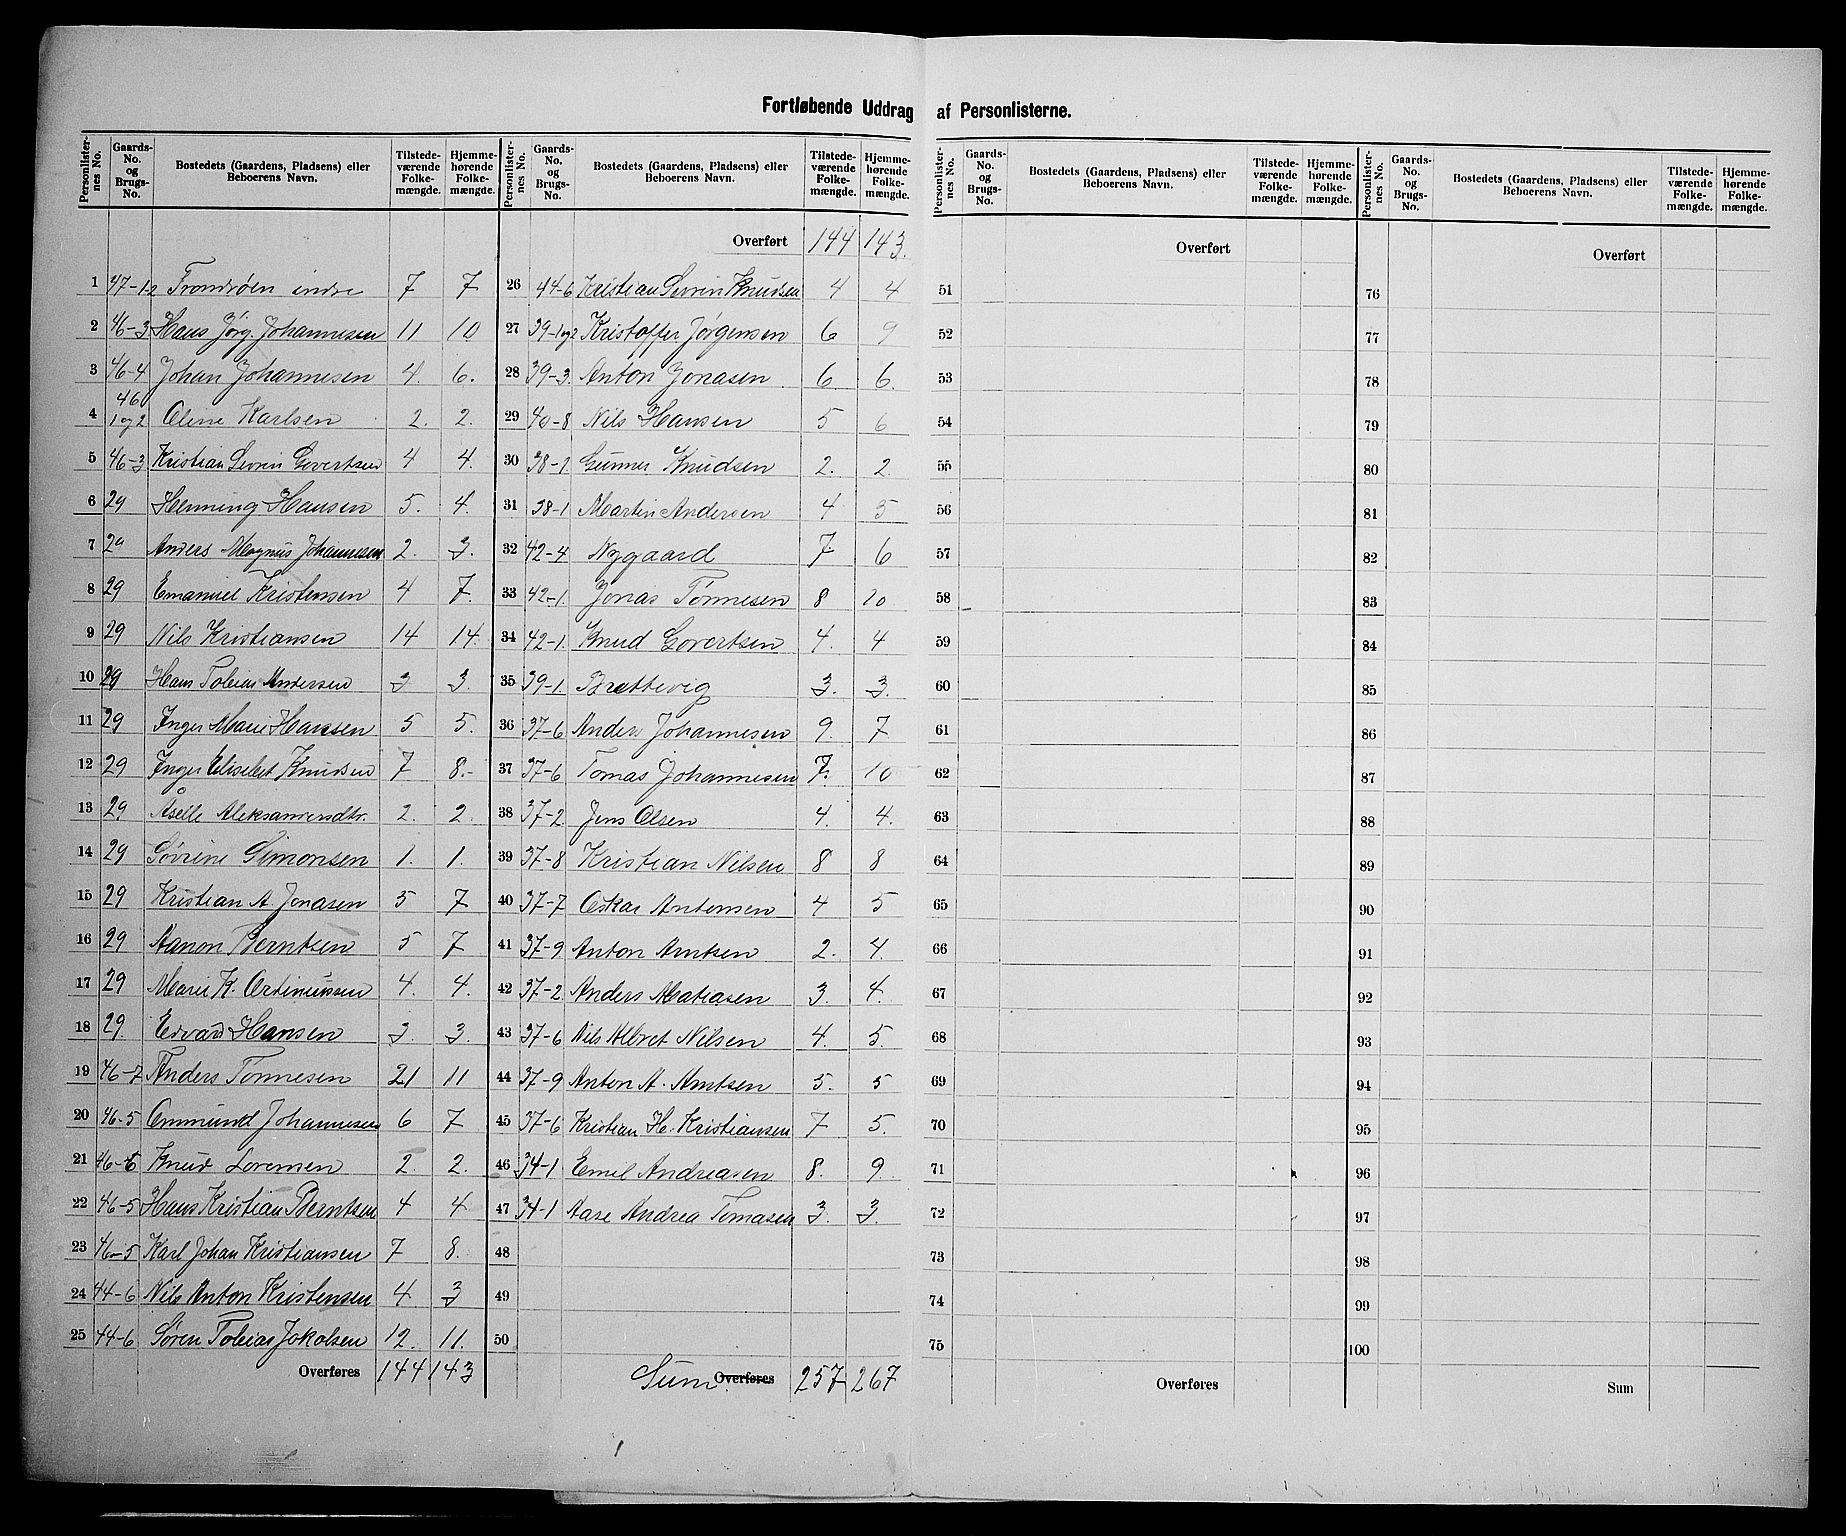 Fortløbende Uddrag af Personlisterne.
Personlisternes No. Gaards-No. og Brugs-No. Bostedets (Gaardens, Pladsens) eller Beboerens Navn. Tilstedeværende Folkemængde. Hjemmehørende Folkemængde.
1 47-1-2 Tromdøen indre 7 7
2 46-3 Hans Jørg. Johannesen 11 10
3 46-4 Johan Johannesen 4. 6.
4 46 1og2 Oline Karlsen 2. 2.
5 46-3 Kristian Sevrin Govertsen 4 4.
6 29 Henning Hansen 5. 4.
7 29 Anders Magnus Johannesen 2. 3.
8 29 Emanuel Kristensen 4 7.
9 29 Nils Kristiansen 14 14
10 29 Hans Tobias Andersen 3 3.
11 29 Inger Marie Hansen 5 5.
12 29 Inger Elisebet Knudsen 7 8.-
13 29 Åselle Aleksandersdtr. 2. 2.
14 29 Sövrine Simonsen 1. 1.
15 29 Kristian A. Jonasen 5 7
16 29 Aanon Berntsen 5 7
17 29 Marie K. Ortinussen 4. 4.
18 29. Edvard Hansen 3. 3.
19 46-7 Anders Tönnesen 21 11
20 46-5 Ommund Johannesen 6 7
21 46-6 Knud Loremen 2. 2.
22 46-5 Hans Kristian Berntsen 4 4
23 46-5 Karl Johan Kristiansen 7 8.
24 44-6 Nils Anton Kristensen 4 3
25 44-6 Søren Tobias Jakobsen 12. 11.
Overføres 144 143
Personlisternes No. Gaards-No. og Brugs-No. Bostedets (Gaardens, Pladsens) eller Beboerens Navn. Tilstedeværende Folkemængde. Hjemmehørende Folkemængde.
Overført 144 143.
26 44-6 Kristian Sevrin Knudsen 4 4
27 39-1og2 Kristoffer Jørgensen 6 9
28 39-3. Anton Jonasen 6. 6.
29 40-8 Nils Hansen 5 6
30 38-1 Gunner Knudsen 2. 2.
31 38-1 Martin Andersen 4 5
32 42-4 Nygaard 7 6
33 42-1. Jonas Tönnesen 8 10
34 42-1. Knud Govertsen 4. 4
35 39-1. Brattevig 3. 3.
36 37-6 Anders Johannesen 9. 7
37 37-6 Tomas Johannesen 7. 10
38 37-2. Jens Olsen 4. 4.
39 37-8 Kristian Nilsen 8 8
40 37-7 Oskar Antonsen 4 5
41 37-9 Anton Arntsen 2. 4.
42 37-2 Anders Matiasen 3. 4.
43 37-6 Nils Albret Nilsen 4. 5.
44 37-9 Anton A. Arntsen 5. 5
45 37-6 Kristian H. Kristiansen 7 5.
46 34-1 Emil Andreasen 8. 9.
47 34-1 Aase Andrea Tomasen 3. 3.
48
49
50
Sum. Overføres 257 267
Personlisternes No. Gaards-No. og Brugs-No. Bostedets (Gaardens, Pladsens) eller Beboerens Navn. Tilstedeværende Folkemængde. Hjemmehørende Folkemængde.
Overført
51
52
53
54
55
56
57
58
59
60
61
62
63
64
65
66
67
68
69
70
71
72
73
74
75
Overføres
Personlisternes No. Gaards-No. og Brugs-No. Bostedets (Gaardens, Pladsens) eller Beboerens Navn. Tilstedeværende Folkemængde. Hjemmehørende Folkemængde.
Overført
76
77
78
79
80
81
82
83
84
85
86
87
88
89
90
91
92
93
94
95
96
97
98
99
100
Sum